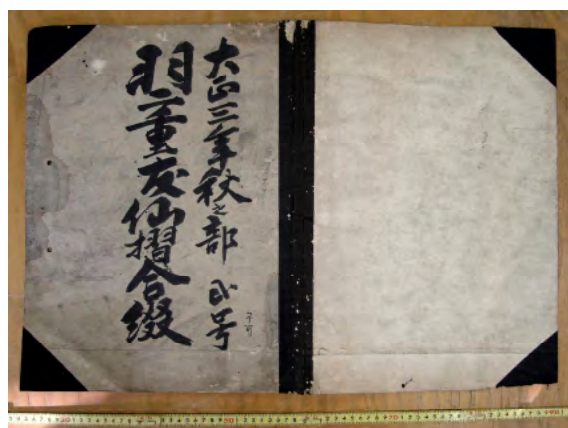 大正三年秋之部 弐号
羽二重友仙摺合綴